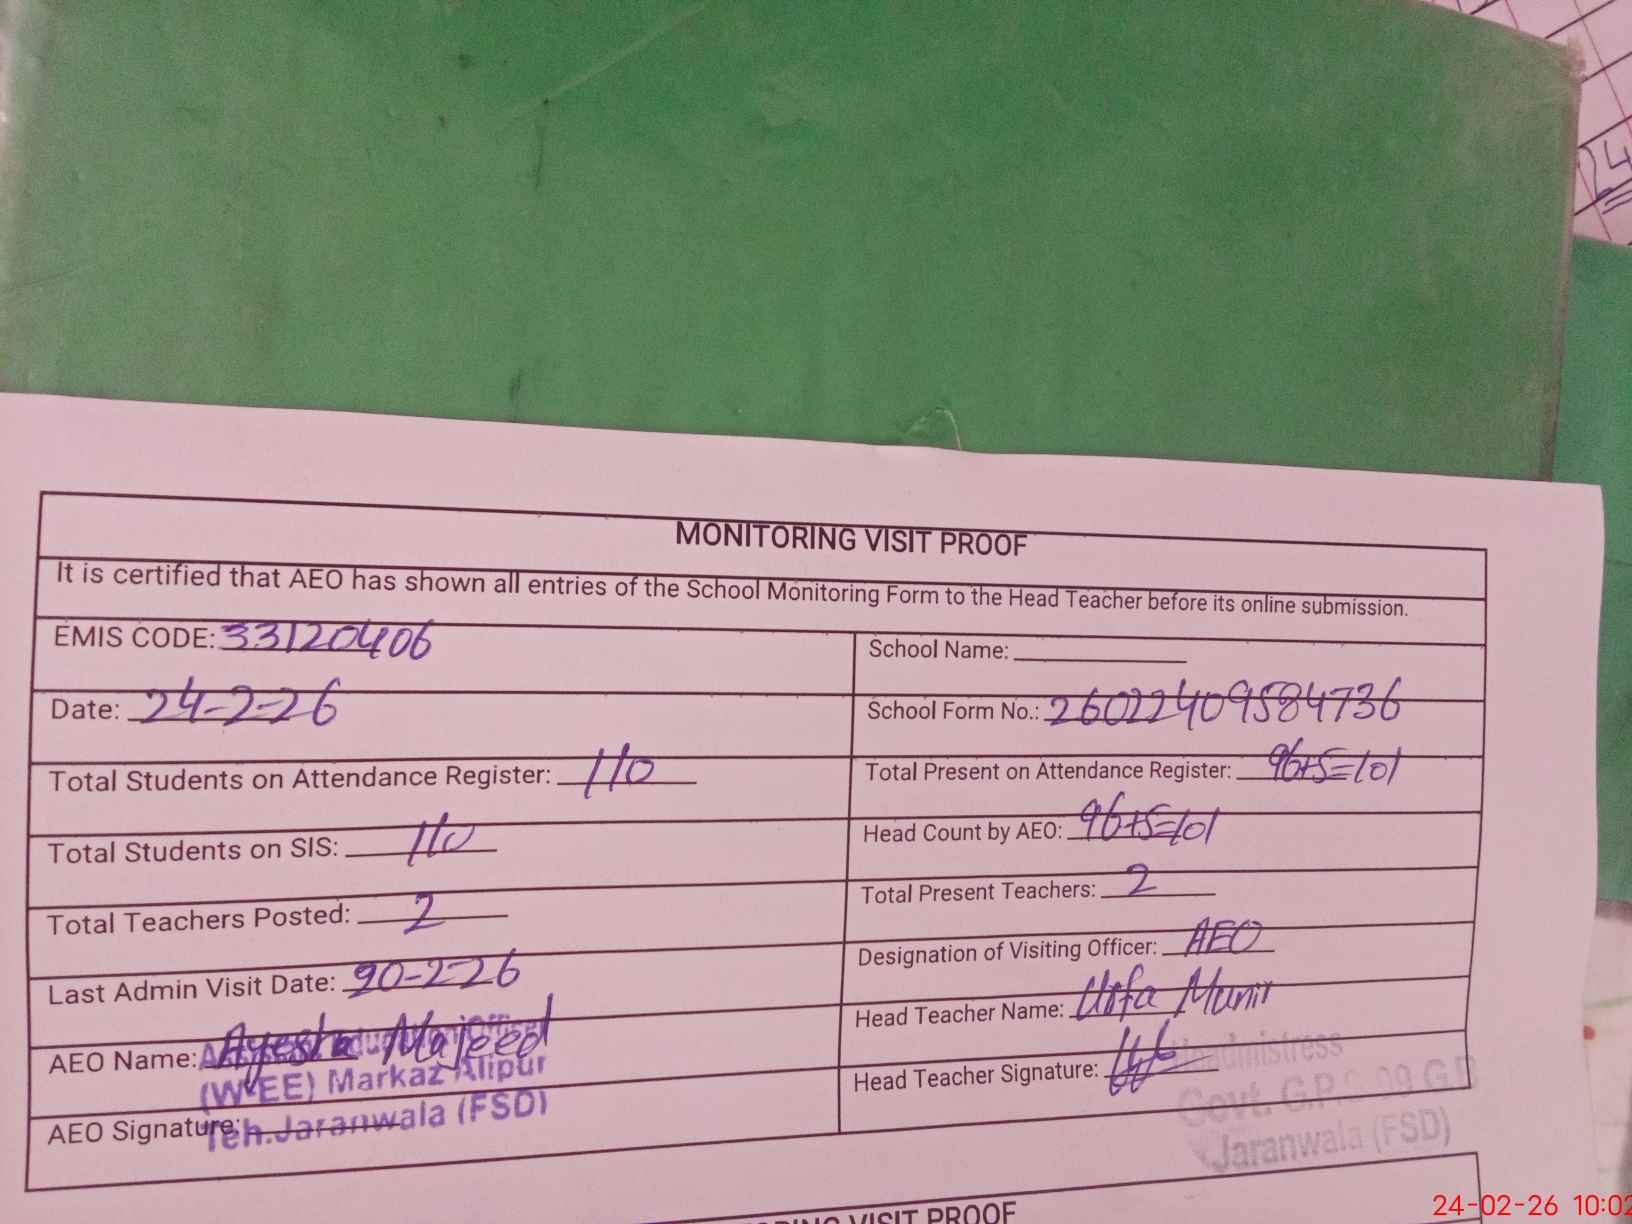 24
MONITORING VISIT PROOF
It is certified that AEO has shown all entries of the School Monitoring Form to the Head Teacher before its online submission.
EMIS CODE: 33120406
School Name:
Date: 24-2-26
School Form No.: 260224409584736
Total Students on Attendance Register: 110
Total Present on Attendance Register: 96+5=101
Total Students on SIS: 110
Head Count by AEO: 96+5=101
Total Teachers Posted: 2
Total Present Teachers: 2
Last Admin Visit Date: 20-2-26
Designation of Visiting Officer: AEO
AEO Name: Ayesha Majeed
Head Teacher Name: Urfa Munir
(W-EE) Markaz Alipur
AEO Signature:
Teh.Jaranwala (FSD)
Head Teacher Signature:
Headmistress
Govt. G.P.S 09 G.B
Jaranwala (FSD)
VISIT PROOF
24-02-26 10:02